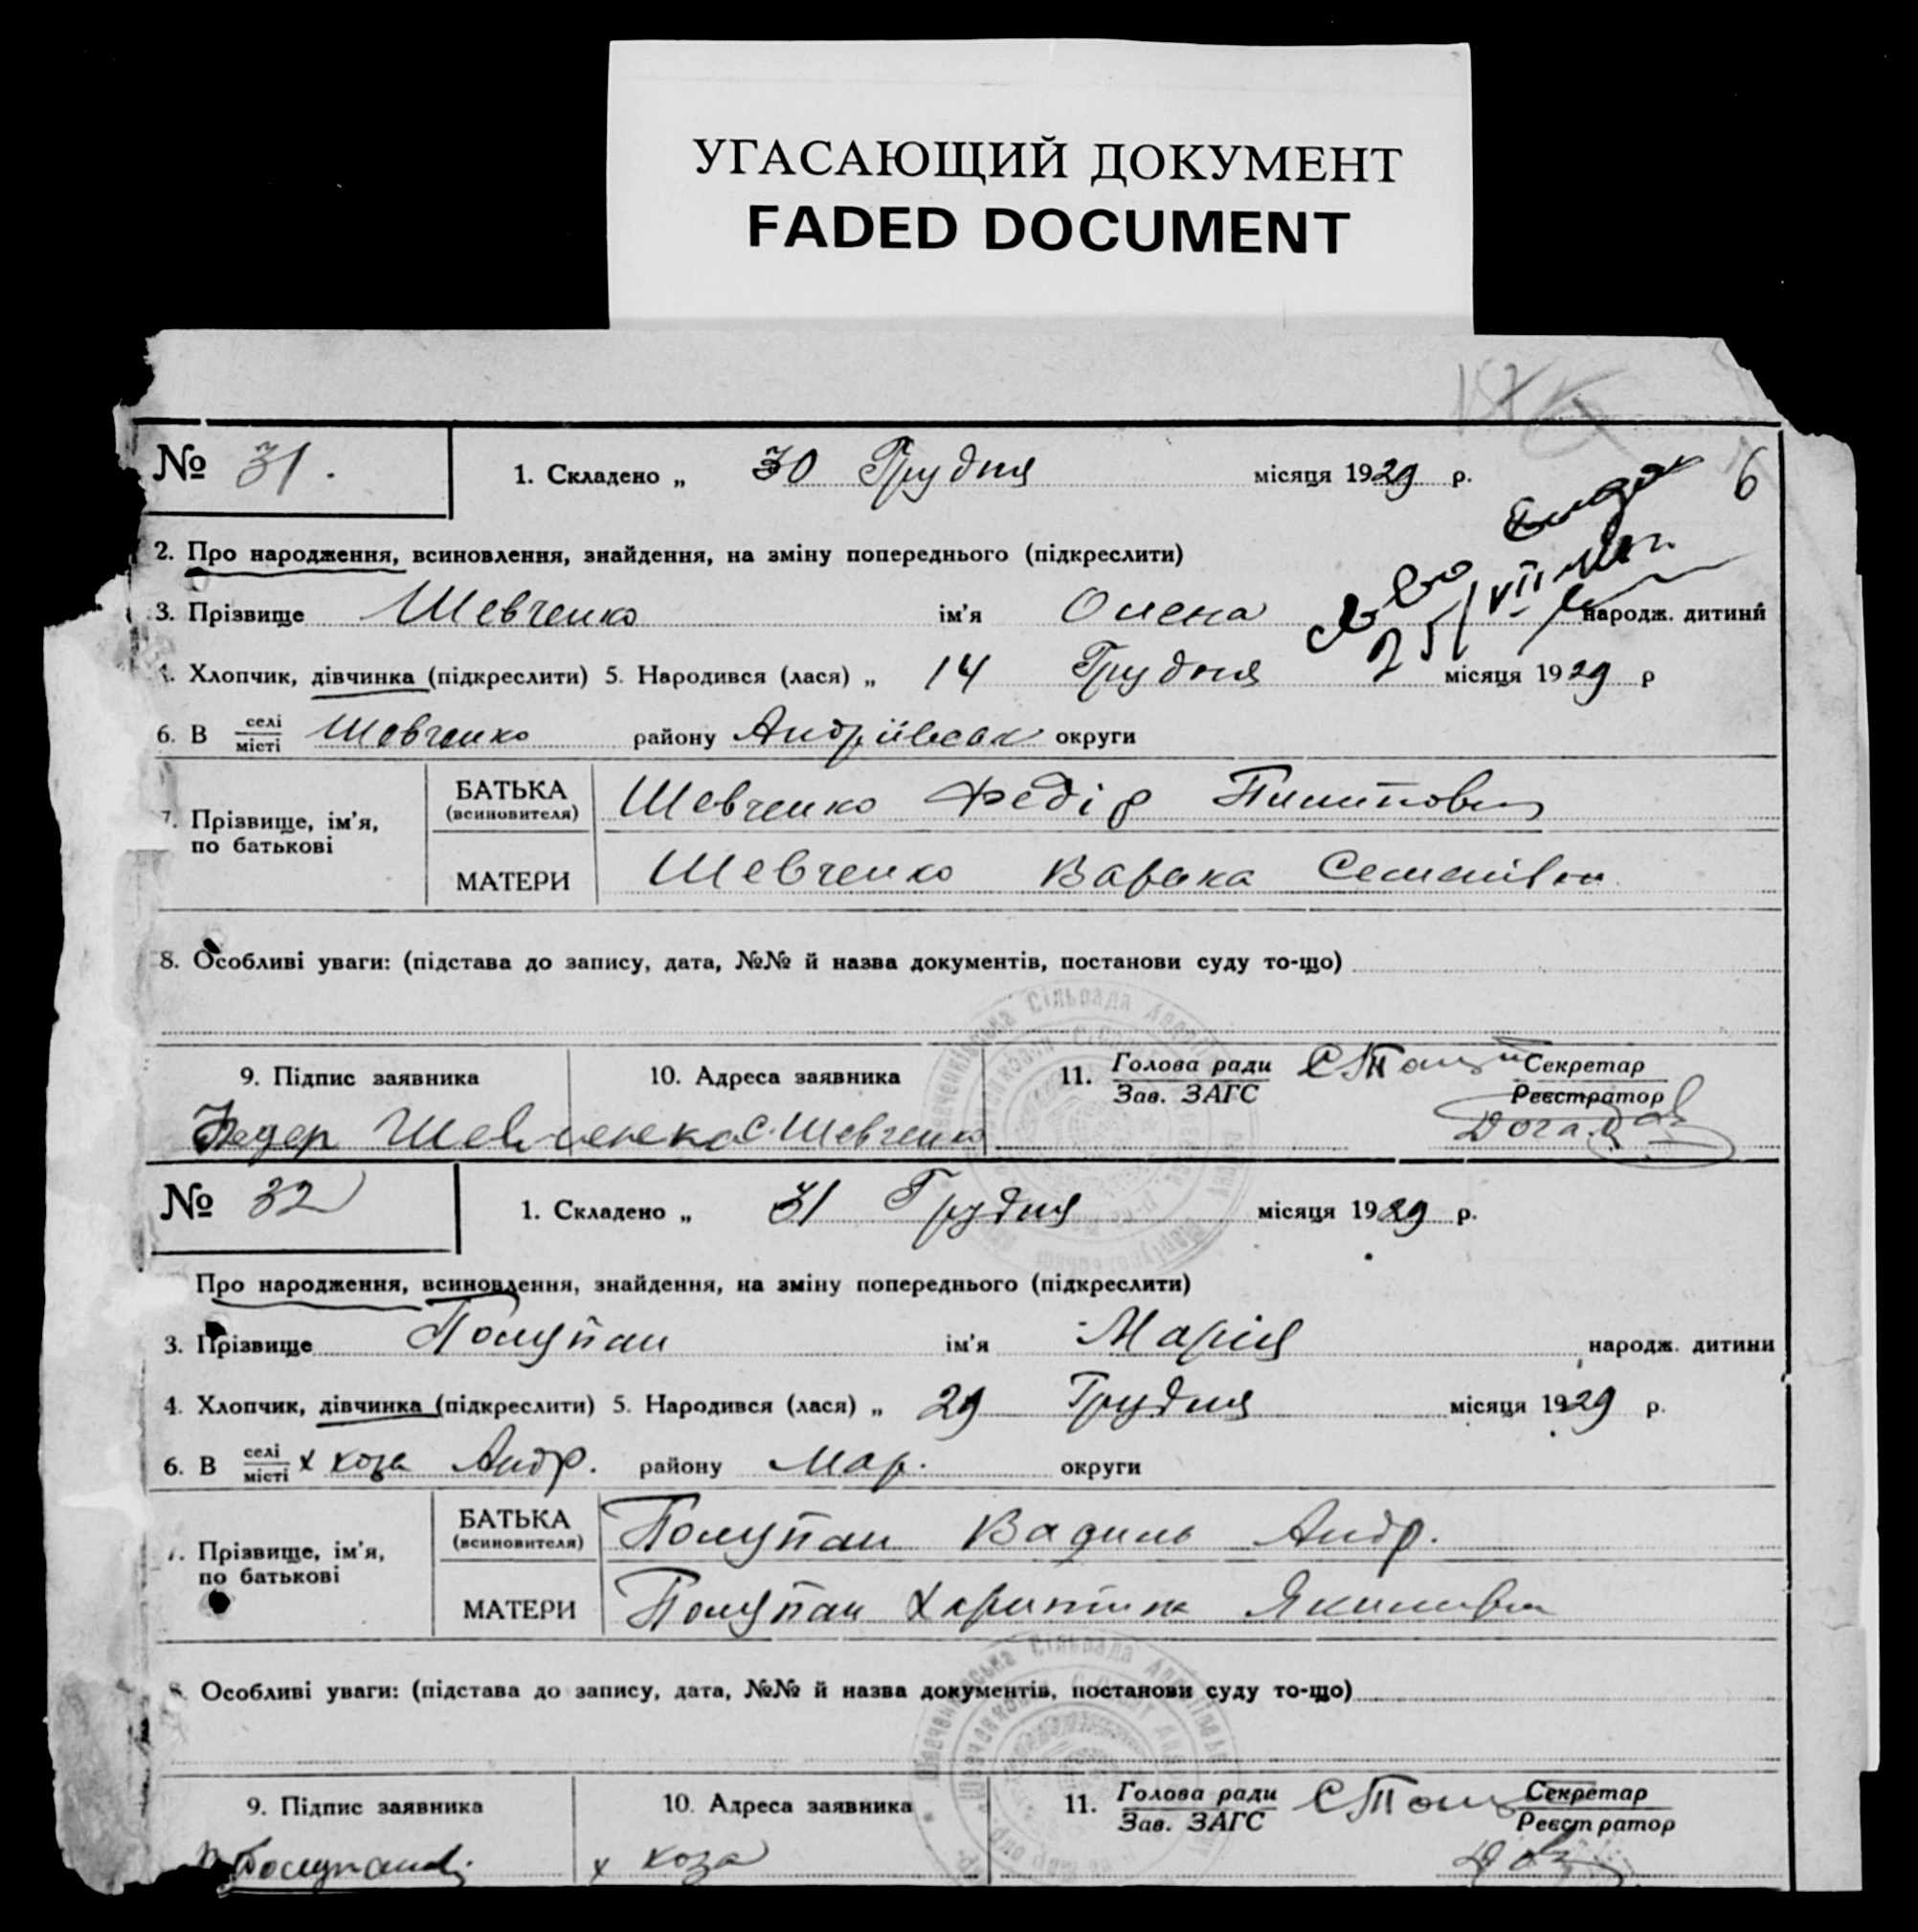 УГАСАЮЩИЙ ДОКУМЕНТ
FADED DOCUMENT
6
№ 31.
1. Складено „ 30 Грудня місяця 1929 р.
2. Про народження, всиновлення, знайдення, на зміну попереднього (підкреслити)
3. Прізвище Шевченко ім'я Олена народж. дитини
4. Хлопчик, дівчинка (підкреслити) 5. Народився (лася) „ 14 Грудня місяця 1929 р
6. В селі місті Шевченко району Андріївськ округи
7. Прізвище, ім'я, по батькові
БАТЬКА (всиновителя) Шевченко Федір Пилипович
МАТЕРИ Шевченко Варвка Семенівна
8. Особливі уваги: (підстава до запису, дата, №№ й назва документів, постанови суду то-що)
9. Підпис заявника 10. Адреса заявника 11. Голова ради Зав. ЗАГС Секретар Реєстратор
Федер Шевченко с. Шевченко
№ 32
1. Складено „ 31 Грудня місяця 1929 р.
Про народження, всиновлення, знайдення, на зміну попереднього (підкреслити)
3. Прізвище Полупан ім'я Марія народж. дитини
4. Хлопчик, дівчинка (підкреслити) 5. Народився (лася) „ 29 Грудня місяця 1929 р.
6. В селі місті х коза Андр. району Мар. округи
7. Прізвище, ім'я, по батькові
БАТЬКА (всиновителя) Полупан Василь Андр.
МАТЕРИ Полупан Харитина Якимівна
8. Особливі уваги: (підстава до запису, дата, №№ й назва документів, постанови суду то-що)
9. Підпис заявника 10. Адреса заявника 11. Голова ради Зав. ЗАГС Секретар Реєстратор
х коза